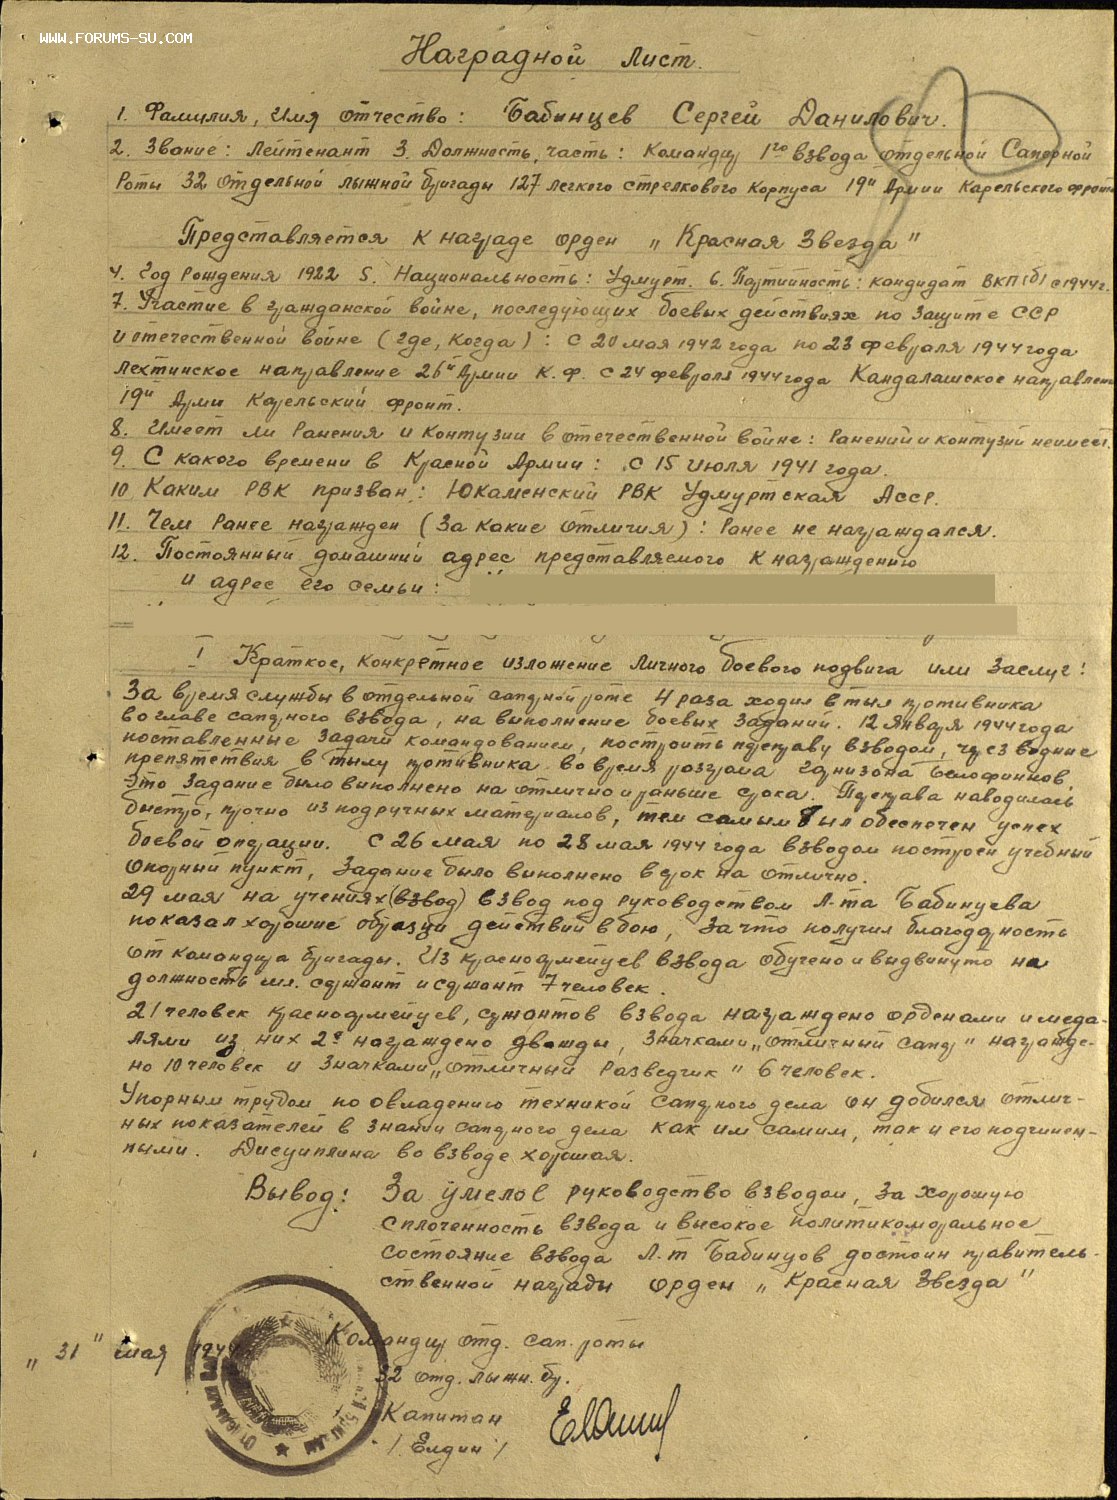 WWW.FORUMS-SU.COM
Наградной лист.
1. Фамилия, Имя отчество: Бабинцев Сергей Данилович.
2. Звание: Лейтенант 3. Должность, часть: Командир 1го взвода отдельной Саперной
Роты 32 отдельной лыжной бригады 127 легкого стрелкового корпуса 19й Армии Карельского фронта
Представляется к награде орден „Красная Звезда"
4. Год рождения 1922 5. Национальность: Удмурт. 6. Партийность: кандидат ВКП(б) с 1944г.
7. Участие в гражданской войне, последующих боевых действиях по защите ССР
и отечественной войне (где, когда): с 20 мая 1942 года по 23 февраля 1944 года
Лехтинское направление 26й Армии К.Ф. с 24 февраля 1944 года Кандалашское направлен
19й Арми Карельский фронт.
8. Имеет ли ранения и контузии в отечественной войне: Ранений и контузий неимеет.
9. С какого времени в Красной Армии: с 15 июля 1941 года.
10 Каким РВК призван: Юкаменский РВК Удмуртская АССР.
11. Чем ранее награжден (за какие отличия): Ранее не награждался.
12. Постоянный домашний адрес представляемого к награждению
и адрес его семьи:
I Краткое, конкретное изложение личного боевого подвига или заслуг:
За время службы в отдельной саперной роте 4 раза ходил в тыл противника
во главе саперного взвода, на выполнение боевых заданий. 12 января 1944 года
поставленные задачи командованием, построить переправу взводом, через водные
препятствия в тылу противника во время разгрома гарнизона Белофиннов,
это задание было выполнено на отлично и раньше срока. Переправа наводилась
быстро, прочно из подручных материалов, тем самым был обеспечен успех
боевой операции. с 26 мая по 28 мая 1944 года взводом построен учебный
опорный пункт, задание было выполнено в срок на отлично.
29 мая на учениях (взвод) взвод под руководством Л-та Бабинцева
показал хорошие образцы действий в бою, за что получил благодарность
от командира бригады. Из красноармейцев взвода обучено и выдвинуто на
должность мл. сержант и сержант 7 человек.
21 человек красноармейцев, сержантов взвода награждено орденами и меда-
лями из них 2е награждено дважды, значками „отличный сапер" награжде-
но 10 человек и значками „отличный разведчик" 6 человек.
Упорным трудом по овладению техникой саперного дела он добился отлич-
ных показателей в знании саперного дела как им самим, так и его подчинен-
ными. Дисциплина во взводе хорошая.
Вывод: За умелое руководство взводом, за хорошую
сплоченность взвода и высокое политикоморальное
состояние взвода Л-т Бабинцов достоин правитель-
ственной награды орден „Красная Звезда"
Командир отд. сап. роты
„31" мая 1944
32 отд. лыжн. бр.
Капитан
/Елдин/